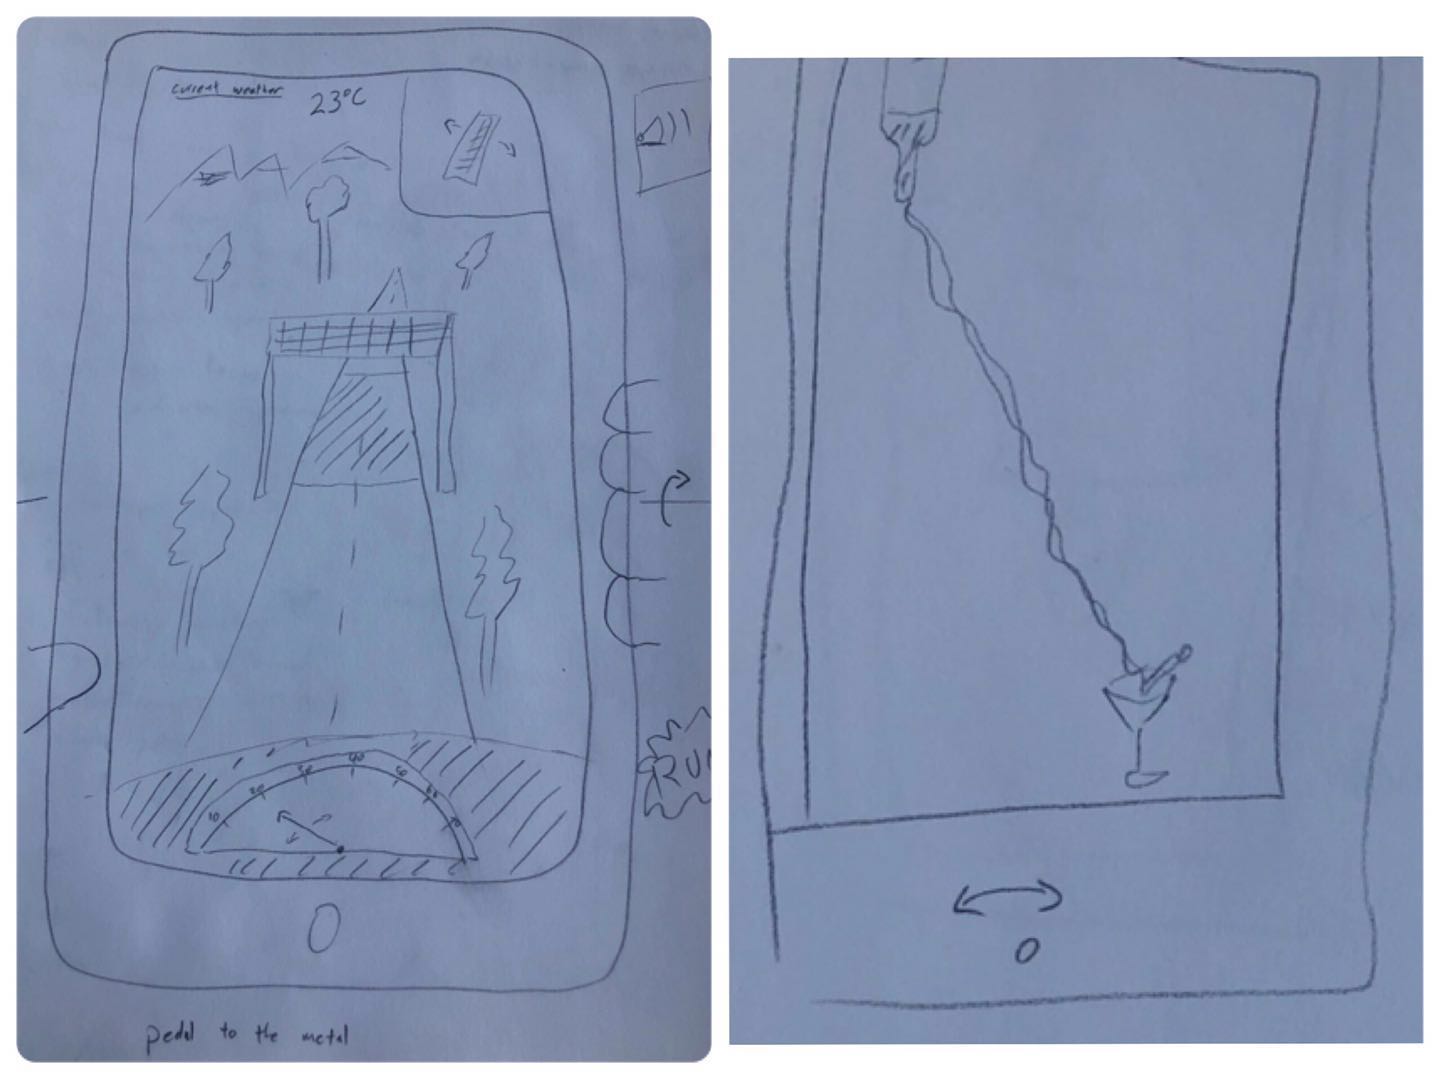 current weather
23°C
RU
10
20
30
40
50
60
70
pedal to the metal